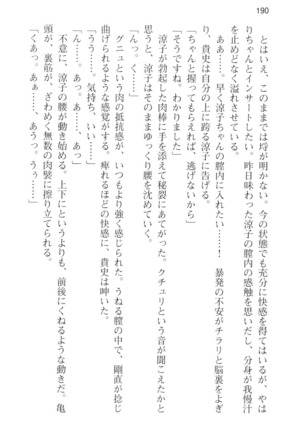 190
いえ、このままでは埒が明かない。今の状態でも充分に快感を得てはいるが、やは
りちゃんとインサートしたい。昨日味わった涼子の膣内の感触を思いだし、分身が我慢汁
を止めどなく溢れさせている。
あぁ……。早く涼子ちゃんの膣内に入れたい……！　暴発の不安がチラリと脳裏をよぎ
り、貴史は自分の上に跨る涼子に告げる。
「ちゃんと握ってもらえれば、逃げないから」
「そうですね。わかりました」
涼子が勃起した肉棒に手を添えて秘裂にあてがった。クチュリという音が聞こえたかと
思うと、涼子はそのままゆっくり腰を沈めていく。
「んっ。く……」
グニュという肉の抵抗感が、いつもより強く感じられた。うねる膣の中で、剛直が捻じ
曲げられるような感覚がある。痺れるほどの快感に、貴史は呻いた。
「うう……。気持ち、いい……」
「ん……。あっ。あ……、あっ」
不意に、涼子の腰が動き始める。上下にというよりも、前後にくねるような動きだ。亀
頭が、裏筋が、ざわめく無数の肉襞に擦り立てられる。
「くあっ。あぁ……、あうっ。うぅ……」